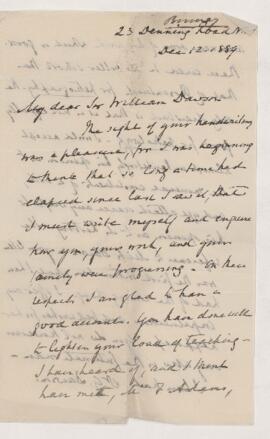 23 Denning Road N.
Dec 12. 1889.
My dear Sir William Dawson
The sight of your handwriting
was a pleasure, for I was beginning
to think that so long a time had
elapsed since last I saw it, that
I must write myself and enquire
how you, your work, and your
family were progressing - On these
respects I am glad to have
good accounts. You have done well
to lighten your load of teaching -
I have heard of, and I think
have met, Mr F Adams,